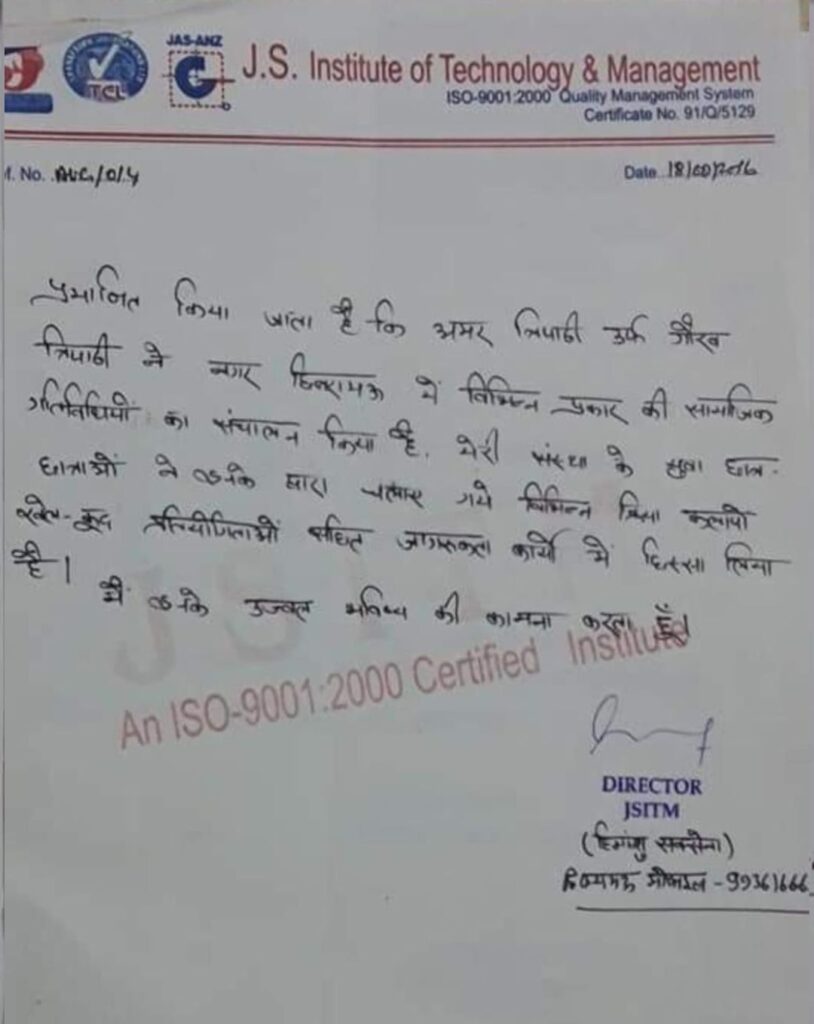 TCL
JAS-ANZ
J.S. Institute of Technology & Management
ISO-9001:2000 Quality Management System
Certificate No. 91/Q/5129
f. No.
Date
प्रमाणित किया जाता है कि अमर त्रिपाठी उर्फ गौरव
त्रिपाठी ने नगर छिबरामऊ में विभिन्न प्रकार की सामाजिक
गतिविधियों का संचालन किया है. मेरी संस्था के युवा छात्र-
छात्राओं ने उनके द्वारा चलाए गये विभिन्न क्रिया कलापो
खेल-कूद प्रतियोगिताओं सहित जागरूकता कार्यो में हिस्सा लिया
है।
मैं उनके उज्वल भविष्य की कामना करता हूँ।
JSIT
An ISO-9001:2000 Certified Institute
DIRECTOR
JSITM
(हिमांशु सक्सेना)
मोबाइल - 99361666